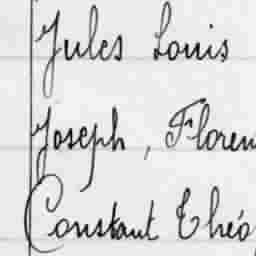 Jules Louis
Joseph, Floren
Constant Théo